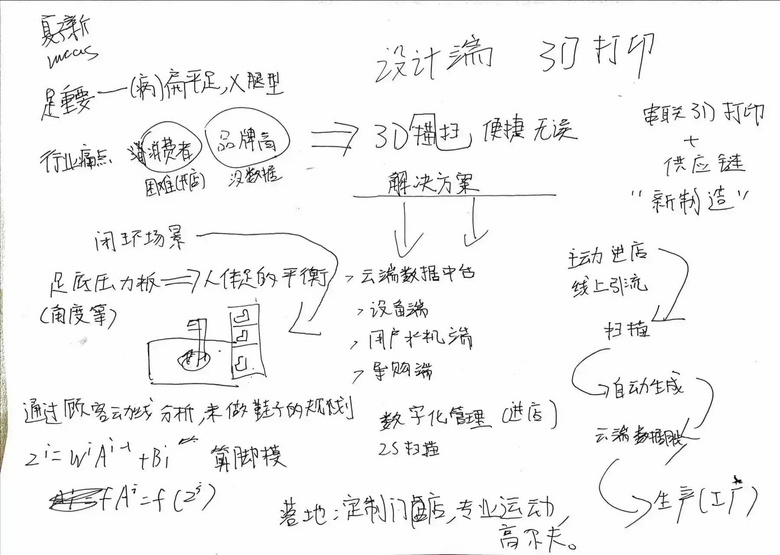 设计端 3D打印
足重要——(病)扁平足,X腿型
行业痛点 消费者 品牌商
困难(进店) 没数据
⇒ 3D扫描 便捷 无误
串联3D打印
+
供应链
"新制造"
解决方案
闭环场景
足底压力板⇒人体足的平衡
(角度等)
>云端数据中台
>设备端
>用户手机端
>导购端
主动进店
线上引流
扫描
自动生成
云端数据
生产(工厂)
通过顾客动线分析,来做鞋子的规划
数字化管理(进店)
2S扫描
zⁱ=wⁱAⁱ⁻¹+Bi 算脚模
fAⁱ=f(zⁱ)
落地:定制门店,专业运动,
高尔夫。